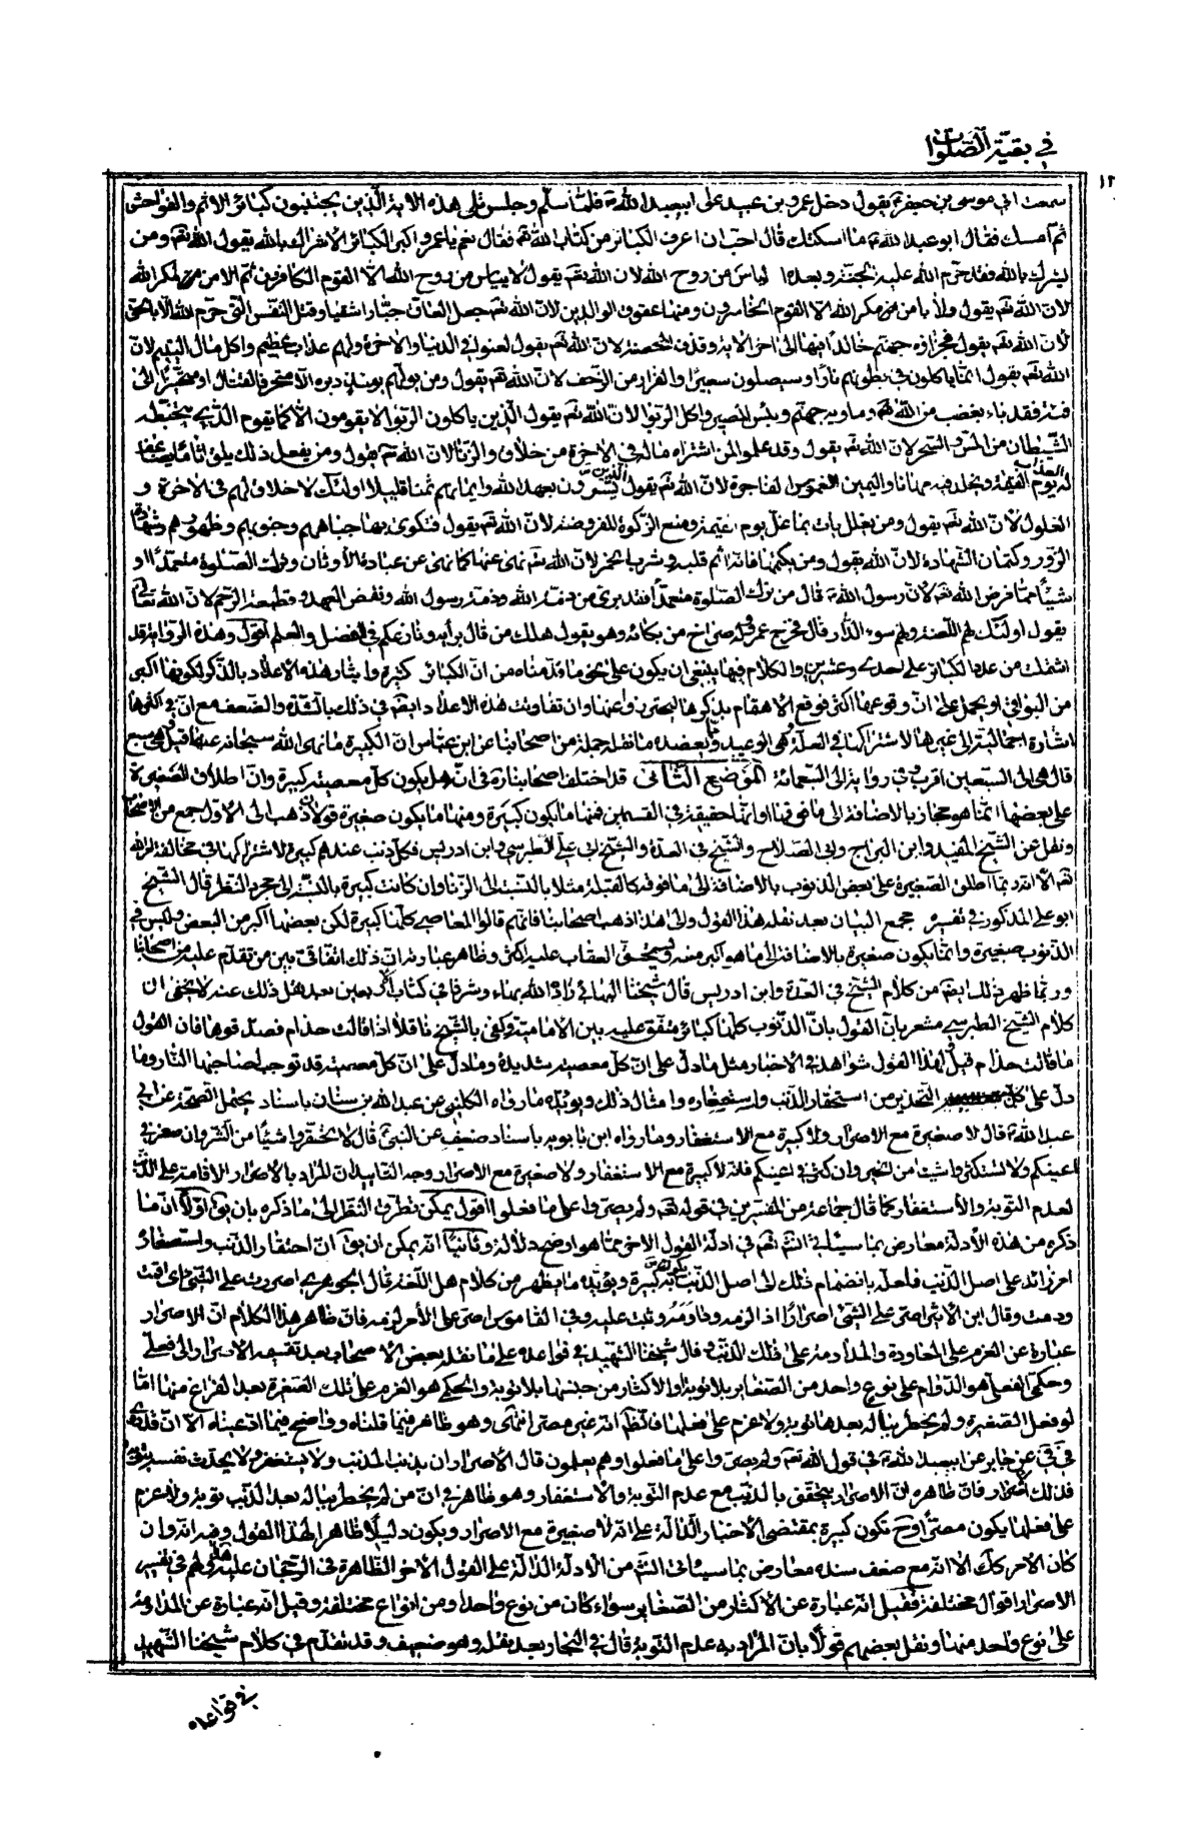 في بقية الصلوات
١٢
سمعت ابي موسى بن جعفر ع يقول دخل عمرو بن عبيد على ابيعبد الله ع فلما سلم وجلس تلى هذه الاية الذين يجتنبون كبائر الاثم والفواحش
ثم امسك فقال ابو عبد الله ع ما اسكتك قال احب ان اعرف الكبائر من كتاب الله تع فقال نعم يا عمرو اكبر الكبائر الاشراك بالله يقول الله تع ومن
يشرك بالله فقد حرم الله عليه الجنة وبعده الياس من روح الله لان الله تع يقول لا يياس من روح الله الا القوم الكافرون ثم الامن من مكر الله
لان الله تع يقول ولا يامن مكر الله الا القوم الخاسرون ومنها عقوق الوالدين لان الله تع جعل العاق جبارا شقيا وقتل النفس التي حرم الله الا بالحق
لان الله تع يقول فجزاؤه جهنم خالدا فيها الى اخر الاية وقذف المحصنة لان الله تع يقول لعنوا في الدنيا والاخرة ولهم عذاب عظيم واكل مال اليتيم لان
الله تع يقول انما ياكلون في بطونهم نارا وسيصلون سعيرا والفرار من الزحف لان الله تع يقول ومن يولهم يومئذ دبره الا متحرفا لقتال او متحيزا الى
فئة فقد باء بغضب من الله ومأويه جهنم وبئس المصير واكل الربوا لان الله تع يقول الذين ياكلون الربوا لا يقومون الا كما يقوم الذي يتخبطه
الشيطان من المس والسحر لان الله تع يقول وقد علموا لمن اشتراه ماله في الاخرة من خلاق والزنا لان الله تع يقول ومن يفعل ذلك يلق اثاما يضاعف
له العذاب يوم القيمة ويخلد فيه مهانا واليمين الغموس الفاجرة لان الله تع يقول الذين يشترون بعهد الله وايمانهم ثمنا قليلا اولئك لا خلاق لهم في الاخرة و
الغلول لان الله تع يقول ومن يغلل يات بما غل يوم القيمة ومنع الزكوة المفروضة لان الله تع يقول فتكوى بها جباههم وجنوبهم وظهورهم وشهادة
الزور وكتمان الشهادة لان الله يقول ومن يكتمها فانه اثم قلبه وشرب الخمر لان الله تع نهى عنها كما نهى عن عبادة الأوثان وترك الصلوة متعمدا او
شيئا مما فرض الله تع لان رسول الله ص قال من ترك الصلوة متعمدا فقد برئ من ذمة الله وذمة رسول الله ونقض العهد وقطيعة الرحم لان الله تعالى
يقول اولئك لهم اللعنة ولهم سوء الدار قال فخرج عمرو وله صراخ من بكائه وهو يقول هلك من قال برأيه ونازعكم في الفضل والعلم اقول وهذه الرواية قد
اشتملت من عدد الكبائر على احدى وعشرين والكلام فيها ينبغي ان يكون على نحو ما قدمناه من ان الكبائر كثيرة وايثار هذه الاعداد بالذكر لكونها اكبر
من البواقي او يحمل على ان وقوعها اكثر فوقع الاهتمام بذكرها ليحترزوا عنها وان تفاوتت هذه الاعداد ايضا في ذلك بالشدة والضعف مع ان في اكثرها
اشارة اجمالية الى غيرها لاشتراكها في العلة وهي الوعيد ويعضده ما نقله جملة من اصحابنا عن ابن عباس ان الكبيرة ما نهى الله سبحانه عنها قيل هي سبع
قال هي الى السبعين اقرب وفي رواية الى السبعمائة الموضع الثاني قد اختلف اصحابنا رض في انه هل يكون كل معصية كبيرة وان اطلاق الصغيرة
على بعضها انما هو مجاز بالاضافة الى ما فوقها او انها حقيقة في القسمين فمنها ما يكون كبيرة ومنها ما يكون صغيرة قولان ذهب الى الاول جمع من الاصحاب
ونقل عن الشيخ المفيد وابن البراج وابي الصلاح والشيخ في العدة والشيخ ابي علي الطبرسي وابن ادريس فكل ذنب عندهم كبيرة لاشتراكها في مخالفة امر الله
تع الا انه ربما اطلق الصغيرة على بعض الذنوب بالاضافة الى ما فوقه كالقبلة مثلا بالنسبة الى الزنا وان كانت كبيرة بالنسبة الى مجرد النظر قال الشيخ
ابو علي المذكور في تفسيره مجمع البيان بعد نقل هذا القول والى هذا ذهب اصحابنا فانهم قالوا المعاصي كلها كبيرة لكن بعضها اكبر من البعض وليس في
الذنوب صغيرة وانما يكون صغيرة بالاضافة الى ما هو اكبر منه ويستحق العقاب عليه اكثر وظاهر عبارته ان ذلك اتفاقي بين من تقدم عليه من اصحابنا
وربما ظهر ذلك ايضا من كلام الشيخ في العدة وابن ادريس قال شيخنا البهائي زاده الله بهاء وشرفا في كتاب الاربعين بعد نقل ذلك عنه لا يخفى ان
كلام الشيخ الطبرسي مشعر بان القول بان الذنوب كلها كبائر متفق عليه بين الامامية وكفى بالشيخ ناقلا اذا قالت حذام فصدقوها فان القول
ما قالت حذام قيل ولهذا القول شواهد في الاخبار مثل ما دل على ان كل معصية شديدة وما دل على ان كل معصية قد توجب لصاحبها النار وما
دل على التحذير من استحقار الذنب واستصغاره وامثال ذلك ويؤيده ما رواه الكليني عن عبد الله بن سنان باسناد يحتمل الصحة عن ابي
عبد الله ع قال لا صغيرة مع الاصرار ولا كبيرة مع الاستغفار وما رواه ابن بابويه باسناد ضعيف عن النبي ص قال لا تحقروا شيئا من الشر وان صغر في
اعينكم ولا تستكثروا شيئا من الخير وان كثر في اعينكم فانه لا كبيرة مع الاستغفار ولا صغيرة مع الاصرار وجه التاييد ان المراد بالاصرار الاقامة على الذنب
لعدم التوبة والاستغفار كما قال جماعة من المفسرين في قوله تع ولم يصروا على ما فعلوا اقول يمكن تطرق النظر الى ما ذكره بان يق اولا ان ما
ذكره من هذه الأدلة معارض بما سيأتي انش تع في ادلة القول الاخر مما هو اوضح دلالة وثانيا انه يمكن ان يق ان احتقار الذنب واستصغاره
امر زائد على اصل الذنب فلعله بانضمام ذلك الى اصل الذنب يكون كبيرة ويؤيده ما يظهر من كلام اهل اللغة قال الجوهري اصررت على الشئ اي اقمت
ودمت وقال ابن الاثير اصر على الشئ اصرارا اذا لزمه وداومه وثبت عليه وفي القاموس اصر على الأمر لزمه فان ظاهر هذا الكلام ان الاصرار
عبارة عن العزم على المعاودة والمداومة على ذلك الذنب وقال شيخنا الشهيد في قواعده على ما نقله بعض الاصحاب بعد تقسيمه الاصرار الى فعلي
وحكمي الفعلي هو الدوام على نوع واحد من الصغاير بلا توبة او الاكثار من جنسها بلا توبة والحكمي هو العزم على تلك الصغيرة بعد الفراغ منها اما
لو فعل الصغيرة ولم يخطر بباله بعدها توبة ولا عزم على فعلها فالظاهر انه غير مصر انتهى وهو ظاهر فيما قلناه وواضح فيما ادعيناه الا انه قد روى
عن جابر عن ابيعبد الله ع في قول الله تع ولم يصروا على ما فعلوا وهم يعلمون قال الاصرار ان يذنب المذنب ولا يستغفر ولا يحدث نفسه بتوبة
فذلك الاصرار فان ظاهره ان الاصرار يتحقق بالذنب مع عدم التوبة والاستغفار وهو ظاهر في ان من لم يخطر بباله بعد الذنب توبة ولا عزم
على فعلها يكون مصرا وح تكون كبيرة بمقتضى الاخبار الدالة على انه لا صغيرة مع الاصرار ويكون دليلا ظاهرا لهذا القول وفيه انه وان
كان الأمر كك الا انه مع ضعف سنده معارض بما سيئاتي انش من الأدلة الدالة على القول الاخر الظاهرة في الرجحان عليه ولهم في تفسير
الاصرار اقوال مختلفة فقيل انه عبارة عن الاكثار من الصغاير سواء كان من نوع واحد او من انواع مختلفة وقيل انه عبارة عن المداومة
على نوع واحد منها ونقل بعضهم قولا بان المراد به عدم التوبة قال في البحار بعد نقله وهو ضعيف وقد تقدم في كلام شيخنا الشهيد
في قواعده